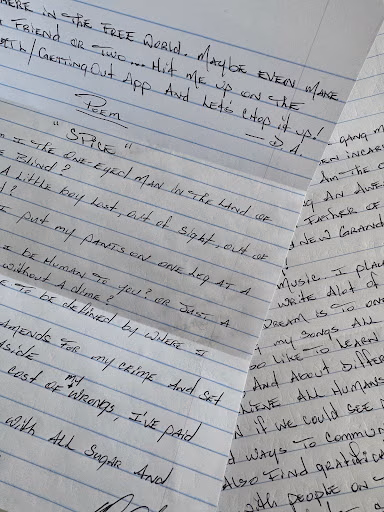 HERE IN THE FREE WORLD. MAYBE EVEN MAKE
FRIEND OR TWO... HIT ME UP ON THE
/GETTING OUT APP AND LET'S CHOP IT UP!
— D.A.
POEM
"SPICE"
I THE ONE-EYED MAN IN THE LAND OF
BLIND?
A LITTLE BOY LOST, OUT OF SIGHT, OUT OF
I PUT MY PANTS ON ONE LEG AT A
I BE HUMAN TO YOU? OR JUST A
WITHOUT A DIME?
TO BE DEFINED BY WHERE I
AMENDS FOR MY CRIME AND SET
ASIDE
COST OF MY WRONGS, I'VE PAID
WITH ALL SUGAR AND
GANG
INCAR
AN THE
AN AWE
FATHER OF
NEW GRAND
MUSIC. I PLAY
WRITE ALOT OF
DREAM IS TO
MY SONGS ALL
LIKE TO LEARN
AND ABOUT DIFFE
ALL HUMANS
IF WE COULD SEE
WAYS TO COMMUN
ALSO FIND GRATIFICA
WITH PEOPLE ON